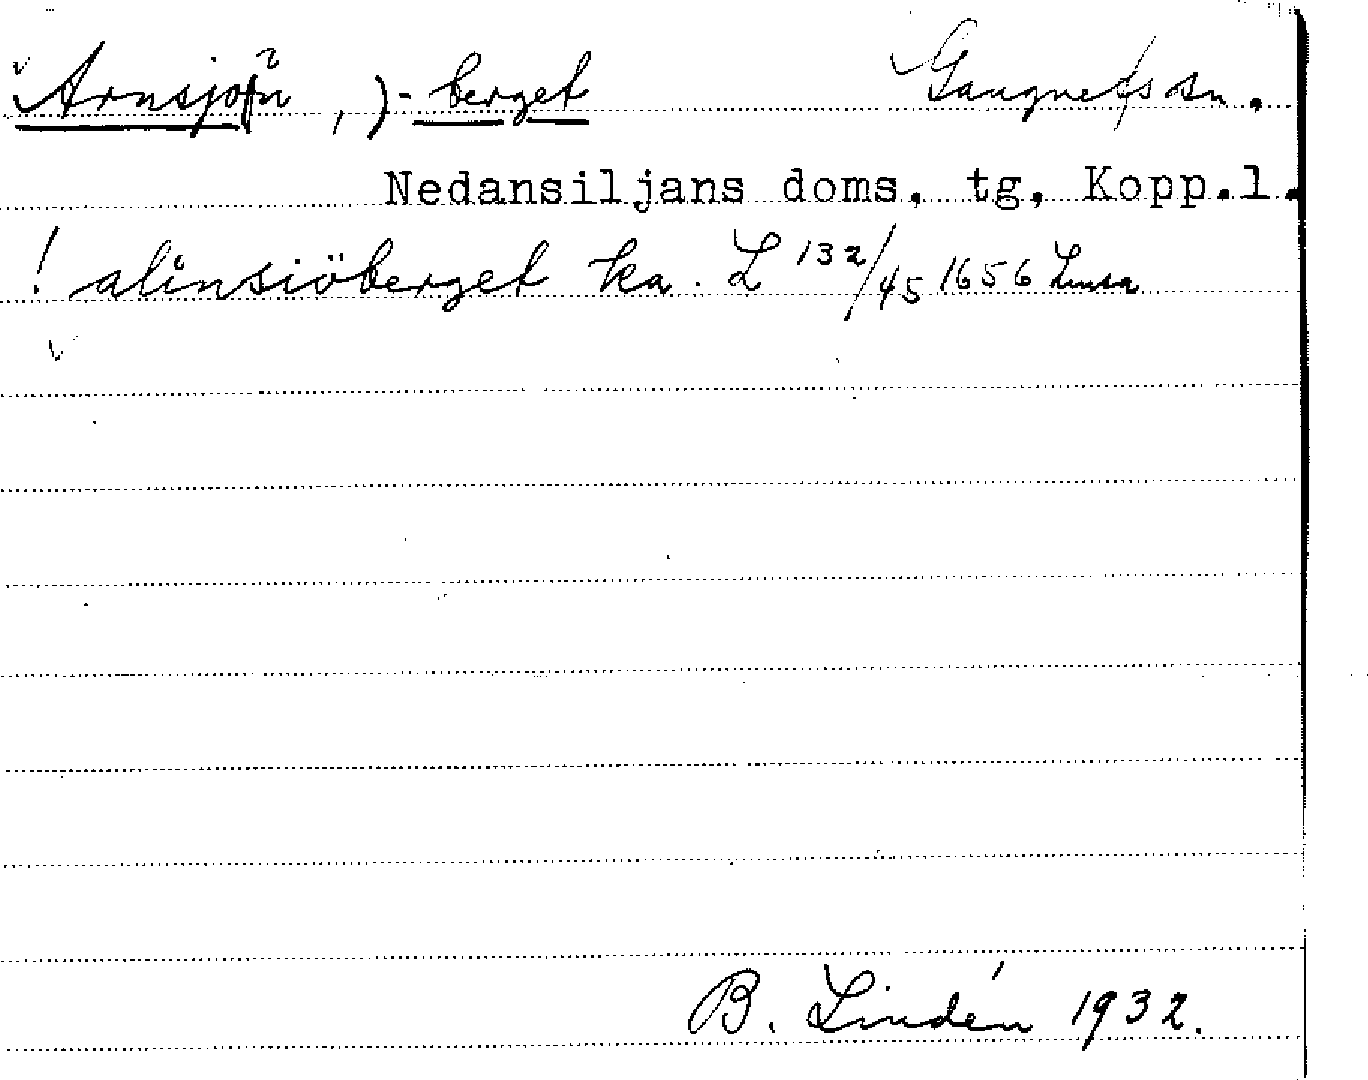 Arnsjö(n, )-berget Gangnefs sn.
Nedansiljans doms. tg, Kopp.l.
! alinsiöberget ka. L 132/45 1656 Lmsa
B. Lindén 1932.